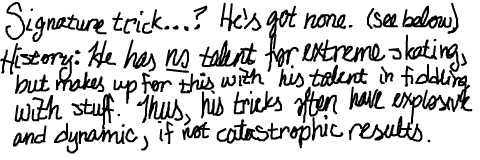 Signature trick...? He's got none. (see below)
History: He has no talent for extreme skating,
but makes up for this with his talent in fiddling
with stuff. Thus, his tricks often have explosive
and dynamic, if not catastrophic results.